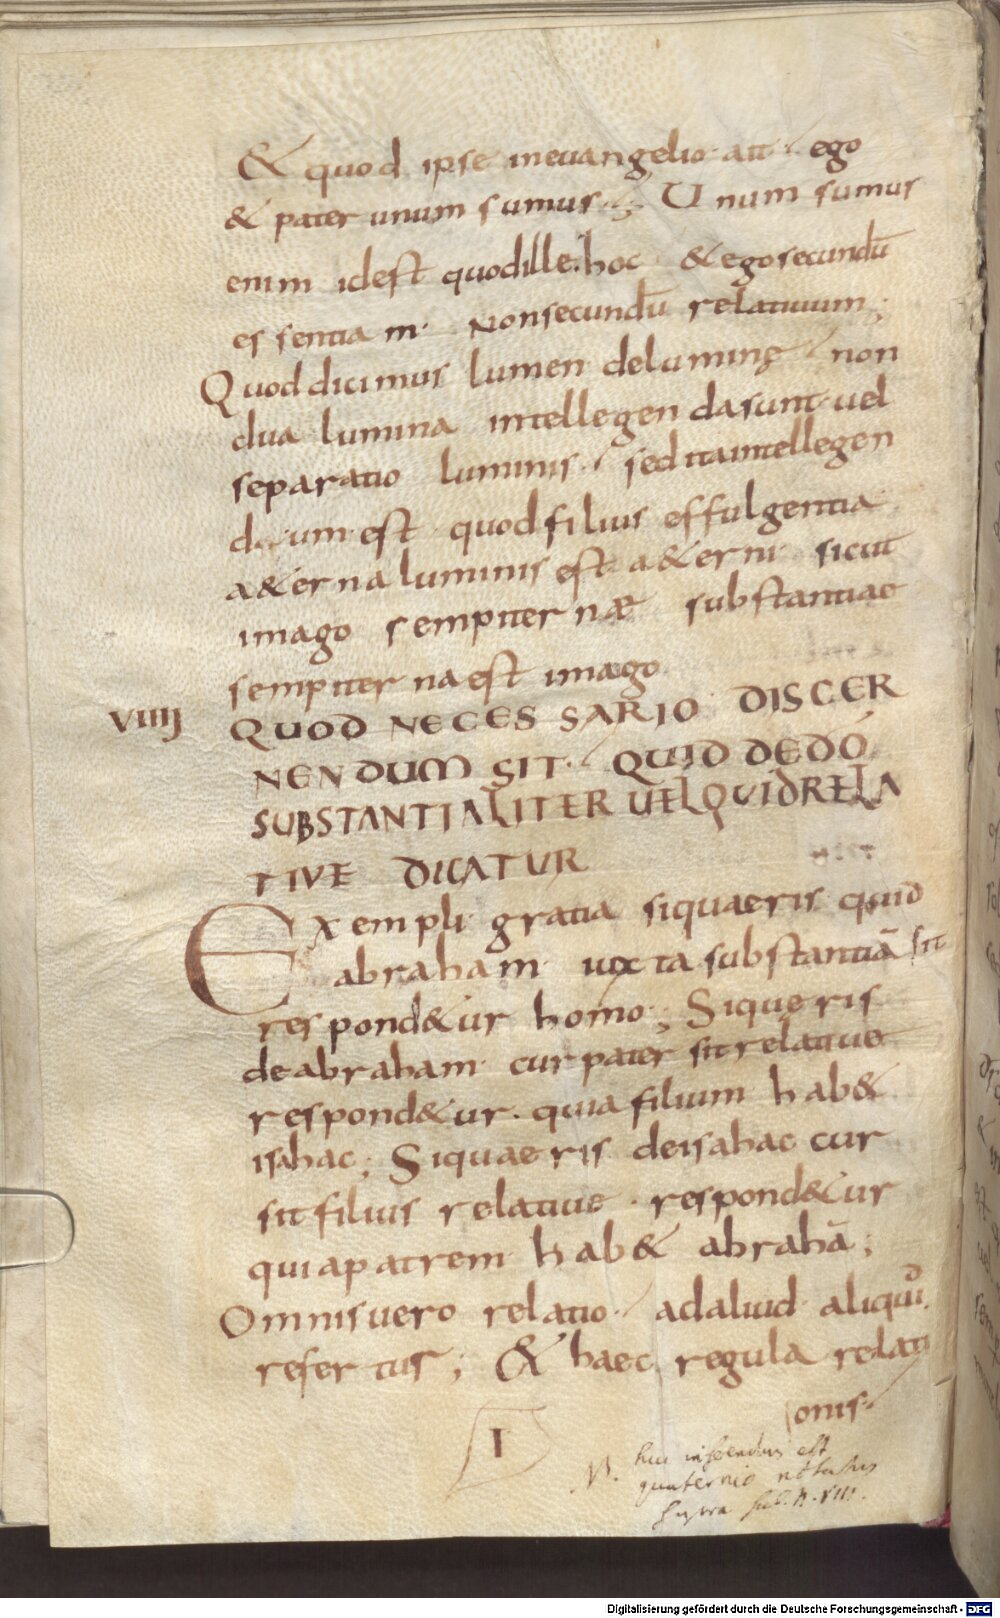 & quod ipse in euangelio ait · ego
& pater unum sumus ·;· Unum sumus
enim idest quod ille. hoc & ego secundū
essentiam · Non secundū relatiuum;
Quod dicimus lumen de luminę · non
dua lumina intellegenda sunt · uel
separatio luminis · sed ita intellegen
dum est · quod filius effulgentia
a&erna luminis est a&erni sicut
imago sempiternæ substantiae
sempiterna est imago
VIIII QUOD NECESSARIO DISCER
NENDUM SIT · QUID DE DŌ
SUBSTANTIALITER UEL QUID RELA
TIVE DICATUR
Exempli gratia si quaeris quid
abraham iuxta substantiā sit
respond&ur homo; Si queris
de abraham cur pater sit relatiue
respond&ur · quia filium hab&
isahac; Si quaeris de isahac cur
sit filius relatiue · respond&ur
qui a patrem hab& abrahā;
Omnis uero relatio · ad aliud aliquid
refertur; & haec regula relati
onis ·
I
N. huc inserendus est
quaternio notatus
supra sub. N. VIII.
Digitalisierung gefördert durch die Deutsche Forschungsgemeinschaft - DFG